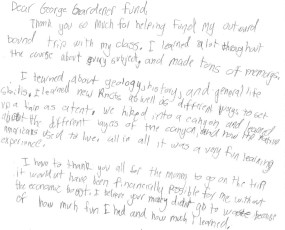 Dear George Gardener Fund,
Thank you so much for helping fund my outward
bound trip with my class. I learned alot thoughout
the course about every subject, and made tons of memories
I learned about geology, history, and general life
Skills. I learned new Knots as well as diffrent ways to set
up a tarp as a tent. We hiked into a canyon and learned
about the different layers of the canyon, and how the native
americans used to live. all in all it was a very fun learning
experience.
I have to thank you all for the money to go on the trip
it would ut have been financially possible for me without
the economic boost. I believe your money didnt go to waste because
of how much fun I had and how much I learned.